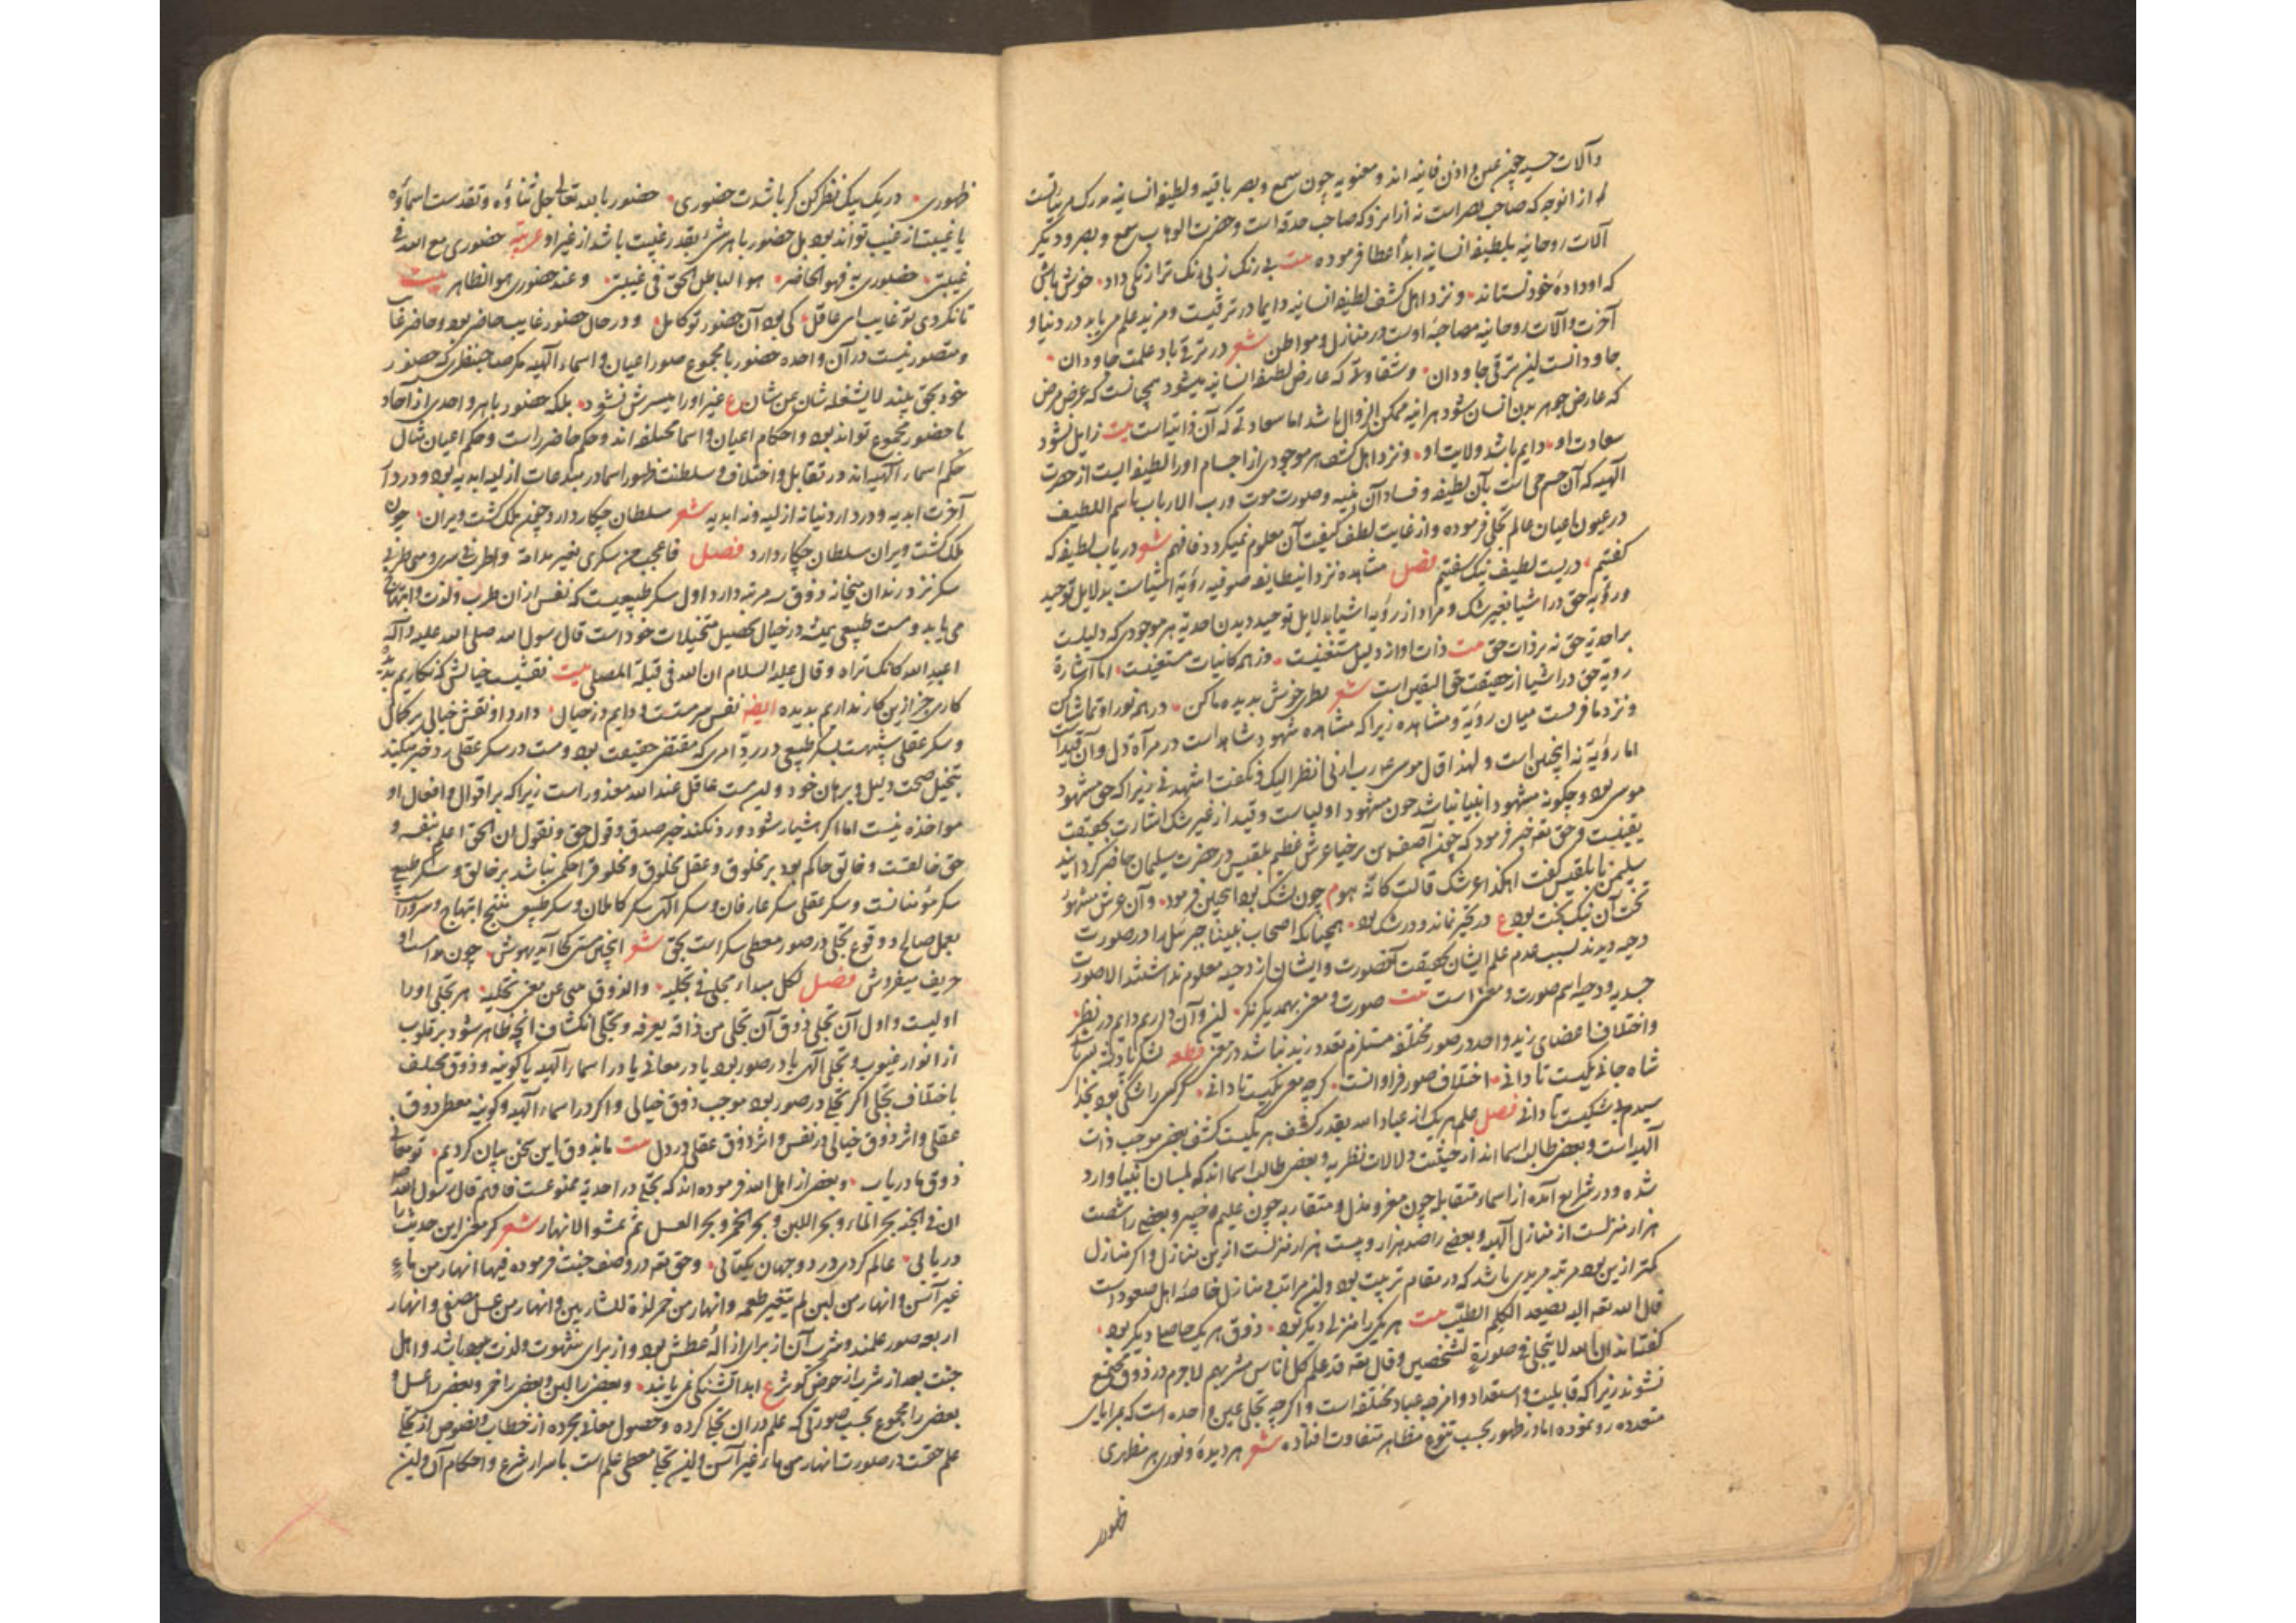 وآلات حسیه چون عین و اذن فانیه اند و معنویه چون سمع و بصر باقیه و لطیفه انسانیه مدرک مرئیاتست
از انوجه که صاحب بصر است نه از انرو که صاحب حدقه است و حضرت الوهاب سمع و بصر و دیگر
آلات روحانیه بلطیفه انسانیه ابداً عطا فرموده بیت بی رنک ز بی رنک ترا رنکی داد خوش باش
که او داده خود نستاند و نزد اهل کشف لطیفه انسانیه دایما در ترقیست و مزید علم می یابد در دنیا و
آخرت و آلات روحانیه مصاحبه اوست در منازل و مواطن شعر در ترقی باد علمت جاودان
جاودانست این ترقی جاودان و شقاوتی که عارض لطیفه انسانیه میشود همچنانست که عرض مرض
که عارض جوهر بدن انسان شود هر آینه ممکن الزوال باشد اما سعادتی که آن ذاتیاست بیت زایل نشود
سعادت او دایم باشد ولایت او و نزد اهل کشف هر موجودی از اجسام او را لطیفه ایست از حضرت
الهیه که آن جسم حی است بآن لطیفه و فساد آن بنیه و صورت موت و رب الارباب باسم اللطیف
در عیون اعیان عالم تجلی فرموده و از غایت لطف کیفیت آن معلوم نمیکردد فافهم شعر دریاب لطیفه که
کفتیم دریست لطیف نیک سفتیم فصل مشاهده نزد اینطایفه صوفیه رؤیة اشیاست بدلایل توحید
و رؤیه حق در اشیا بغیر شک و مراد از رؤیه اشیا بدلایل توحید دیدن احدیة هر موجودی که دلیلست
بر احدیة حق نه بر ذات حق بیت ذات او از دلیل مستغنیست وز همه کائنات مستغنیست اما اشارة
رویة حق در اشیا از حقیقت حق الیقین است شعر نظری خوش بدیده ما کن در همه نور او تماشا کن
و نزد ما فرقست میان رؤیة و مشاهده زیرا که مشاهده شهود شاهد است در مرآة دل و آن قید است
اما رؤیة نه اینچنین است و لهذا قال موسی ع رب ارنی انظر الیک و نکفت اشهدنی زیرا که حق مشهود
موسی بود و چکونه مشهود انبیا نباشد چون مشهود اولیاست و قید از غیر شک اشارت بحقیقت
یقینیست و حق تعه خبر فرمود که چون آصف ابن برخیا عرش عظیم بلقیس در حضرت سلیمان حاضر کردانید
سلیمن با بلقیس کفت اهکذا عرشک قالت کانه هو م چون شک بود اینچنین فرمود و آن عرش مشهود
تخت آن نیک بخت بود ع در تحیر ماند و در شک بود همچنانکه اصحاب نبینا جبرئیل را در صورت
دحیه دیدند بسبب عدم علم ایشان بحقیقت آنصورت و ایشان از دحیه معلوم نداشتند الا صورت
جسدیه و دحیه اسم صورت و معنی است بیت صورت و معنی بهمدیکر نکر این و آن داریم دایم در نظر
و اختلاف اعضای زید واحد در صور مختلفه مستلزم تعدد زید نباشد در معنی قطعه
شاه جانی یکیست تا دانی اختلاف صور فراوانست کرچه معنی یکیست تا دانی
سیدم بی شکیست تا دانی فصل علم هر یک از عباد الله بقدر کشف هر یکیست کشف بعضی موجب ذات
الهیه است و بعضی طالب اسما اند از حیثیت دلالات نظریه و بعضی طالب اسما اند که بلسان انبیا وارد
شده و در شرایع آمده از اسماء متقابله چون معز و مذل و متقاربه چون علیم و خبیر و بعضی را شصت
هزار منزلست از منازل الهیه و بعضی را صد هزار و بیست هزار منزلست ازین منازل و اکر منازل
کمتر ازین بود مرتبه مریدی باشد که در مقام تربیت بود و این مراتب و منازل خاصه اهل صعود است
قال الله تعه الیه یصعد الکلم الطیب بیت هر یکی را منزلی دیکر بود ذوق هر یک حاصلی دیکر بود
کفته اند ان الله لا یتجلی فی صورة لشخصین و قال تعه قد علم کل اناس مشربهم لا جرم در ذوق مجتمع
نشوند زیرا که قابلیت و استعداد و امزجه عباد مختلفه است و اکرچه تجلی عین واحده است که بمرایای
متعدده رو نموده اما در ظهور بحسب تنوع مظاهر متفاوت افتاده شعر هر دیده و نوری هر مظهری
ظهوری
ظهوری در یک بیک نظر کن کر باشدت حضوری حضور با الله تعالی جل ثناؤه و تقدست اسماؤه
با غیبت از غیب تواند بود بل حضور با هر شئ بقدر غیبت باشد از غیر او عربیه حضوری مع الله فی
غیبتی حضوری به فهو الحاضر هو الباطن الحق فی غیبتی و عند حضوری هو الظاهر بیت
تا نکردی تو غایب ای عاقل کی بود آن حضور تو کامل و در حال حضور غایب حاضر بود و حاضر غایب
و متصور نیست در آن واحده حضور با مجموع صور اعیان و اسماء الهیه مکر صاحبنظری که حضور
خود بحق بیند لا یشغله شان عن شان ع غیر او را میسرش نشود بلکه حضور با هر واحدی از آحاد
با حضور مجموع تواند بود و احکام اعیان و اسما مختلفه اند و حکم حاضر راست و حکم اعیان مثال
حکم اسماء الهیه اند در تقابل و اختلاف و سلطنت ظهور اسما در مبدعات ازلیه ابدیه بود و در دار
آخرت ابدیه و در دار دنیا نه ازلیه و نه ابدیه شعر سلطان چکار دارد چون ملک کشت ویران چون
ملک کشت ویران سلطان چکار دارد فصل فاعجب من سکری بغیر مدامة و اطرب فی سری و منی طربی
سکر نزد رندان میخانه ذوق سه مرتبه دارد اول سکر طبیعیست که نفس از ان طرب و لذت و ابتهاج
می یابد و مست طبیعی همیشه در خیال تحصیل متخیلات خود است قال رسول الله صلی الله علیه و آله
اعبد الله کانک تراه و قال علیه السلام ان الله فی قبلة المصلی بیت نقشیست خیالش که نکاریم بدیده
کاری جز ازین کار نداریم بدیده ایضا نفس سرمست و دایم در خیال دارد او نقش خیالی بر کمال
و سکر عقلی شبیهست بسکر طبیعی در رد امری که مقتضی حقیقت بود و مست در سکر عقلی رد خبر میکند
بتخیل صحت دلیل و برهان خود و این مست عاقل عند الله معذور است زیرا که بر اقوال و افعال او
مواخذه نیست اما اکر هشیار شود و رد نکند خبر صدق و قول حق و نقول ان الحق اعلم بنفسه و
حق خالقست و خالق حاکم بود بر مخلوق و عقل مخلوق و مخلوق را حکم نباشد بر خالق و سکر طبیعی
سکر مؤمنانست و سکر عقلی سکر عارفان و سکر الهی سکر کاملان و سکر طبیعی منتج ابتهاج و سرور است
بعمل صالح و وقوع تجلی در صور معطی سکر است بحق شعر اینچنین مستی کجا آید بهوش چون مدامست او
حریف میفروش فصل لکل مبداء مجلی فی تجلیه والذوق منبی عن معنی تحلیه هر تجلی او را
اولیست و اول آن تجلی ذوق آن تجلی من ذاقه یعرفه و تجلی انکشاف آنچه ظاهر شود بر قلوب
از انوار غیوب و تجلی الهی یا در صور بود یا در معانی یا در اسماء الهیه یا کونیه و ذوق مختلف
باختلاف تجلی اکر تجلی در صور بود موجب ذوق خیالی و اکر در اسماء الهیه و کونیه معطی ذوق
عقلی و اثر ذوق خیالی در نفس و اثر ذوق عقلی در دل بیت ما بذوق این سخن بیان کردیم تو معانی
ذوق ما دریاب و بعضی از اهل الله فرموده اند که تجلی در احدیة ممنوعست فافهم قال رسول الله
ان فی الجنة بحر الماء و بحر اللبن و بحر الخمر و بحر العسل ثم تشق الانهار شعر کر معنی این حدیث را
دریابی عالم کردی در دو جهان یکتایی و حق تعه در وصف جنت فرموده فیها انهار من ماء
غیر آسن و انهار من لبن لم یتغیر طعمه و انهار من خمر لذة للشاربین و انهار من عسل مصفی و انهار
اربعه صور علمند و شرب آن از برای ازاله عطش بود و از برای شهوت و لذت بود باشد و اهل
جنت بعد از شرب از حوض کوثر ع ابدا تشنکی نمی یابند و بعضی را لبن و بعضی را خمر و بعضی را عسل و
بعضی را مجموع بحسب صورتی که علم در ان تجلی کرده و حصول معانی مجرده از خطاب و نصوص از تجلی
علم حقست در صورت انهار من ماء غیر آسن و این تجلی معطی علم است باسرار شرع و احکام آن و این